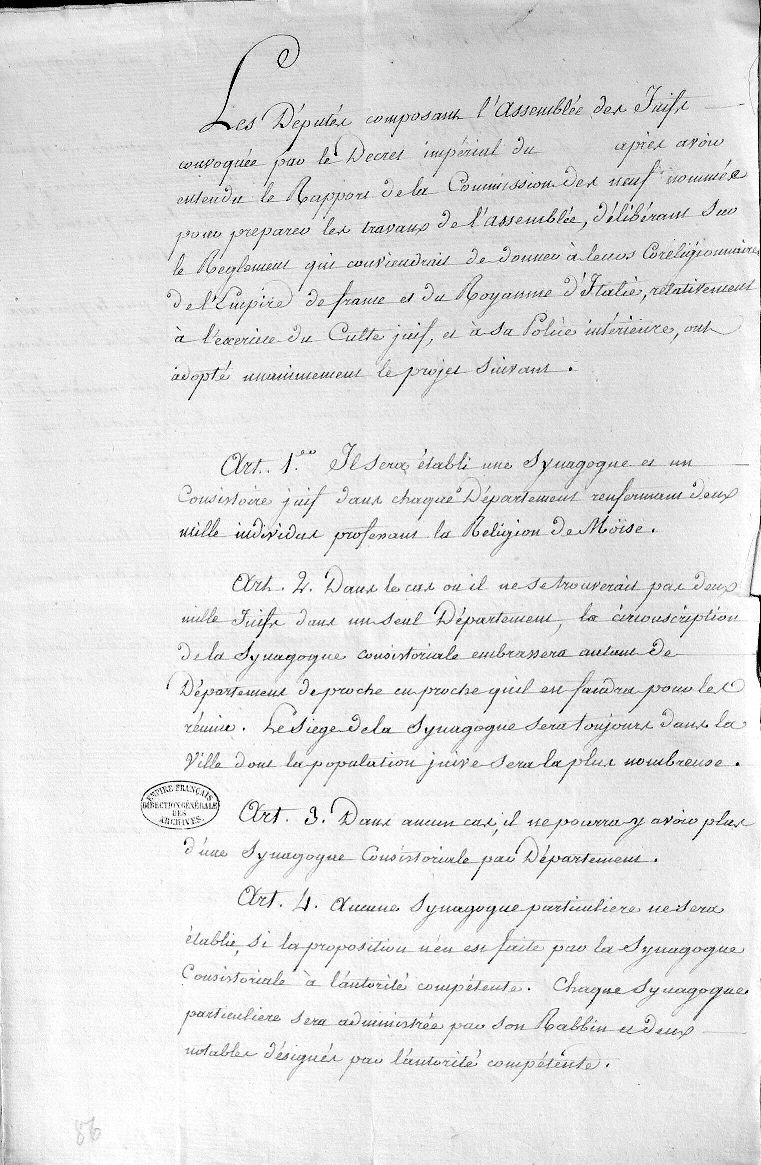 Les Députés composant l'Assemblée des Juifs
convoquée par le Decret impérial du après avoir
entendu le Rapport de la Commission des neuf nommée
pour preparer les travaux de l'assemblée, délibérant sur
le Reglement qu'il conviendrait de donner à leurs Coréligionnaires
de l'Empire de france et du Royaume d'Italie, relativement
à l'exercice du Culte juif, et à sa Police intérieure, ont
adopté unanimement le projet suivant.
Art. 1.er Il sera établi une Synagogue et un
Consistoire juif dans chaque Département renfermant deux
mille individus professant la Religion de Moïse.
Art. 2. Dans le cas où il ne se trouverait pas deux
mille Juifs dans un seul Département, la circonscription
de la Synagogue consistoriale embrassera autant de
Département de proche en proche qu'il en faudra pour les
réunir. Le Siege de la Synagogue sera toujours dans la
Ville dont la population juive sera la plus nombreuse.
EMPIRE FRANÇAIS
DIRECTION GÉNÉRALE
DES
ARCHIVES.
Art. 3. Dans aucun cas, il ne pourra y avoir plus
d'une Synagogue Consistoriale par Département.
Art. 4. Aucune Synagogue particuliere ne sera
établie, si la proposition n'en est faite par la Synagogue
Consistoriale à l'autorité compétente. Chaque Synagogue
particuliere sera administrée par son Rabbin et deux
notables désignés par l'autorité compétente.
86